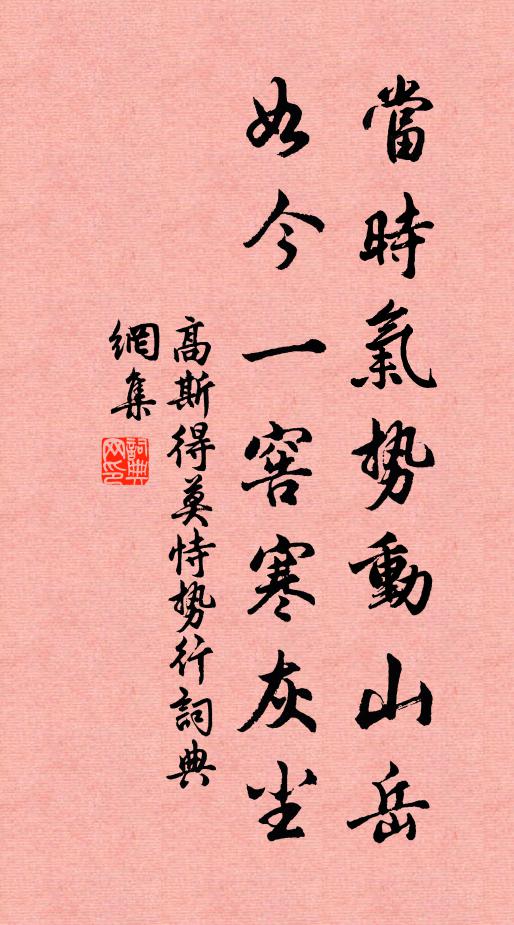 當時氣势動山岳
如今一窖寒灰尘
高斯得莫恃势行詞典
網集
詞典網印